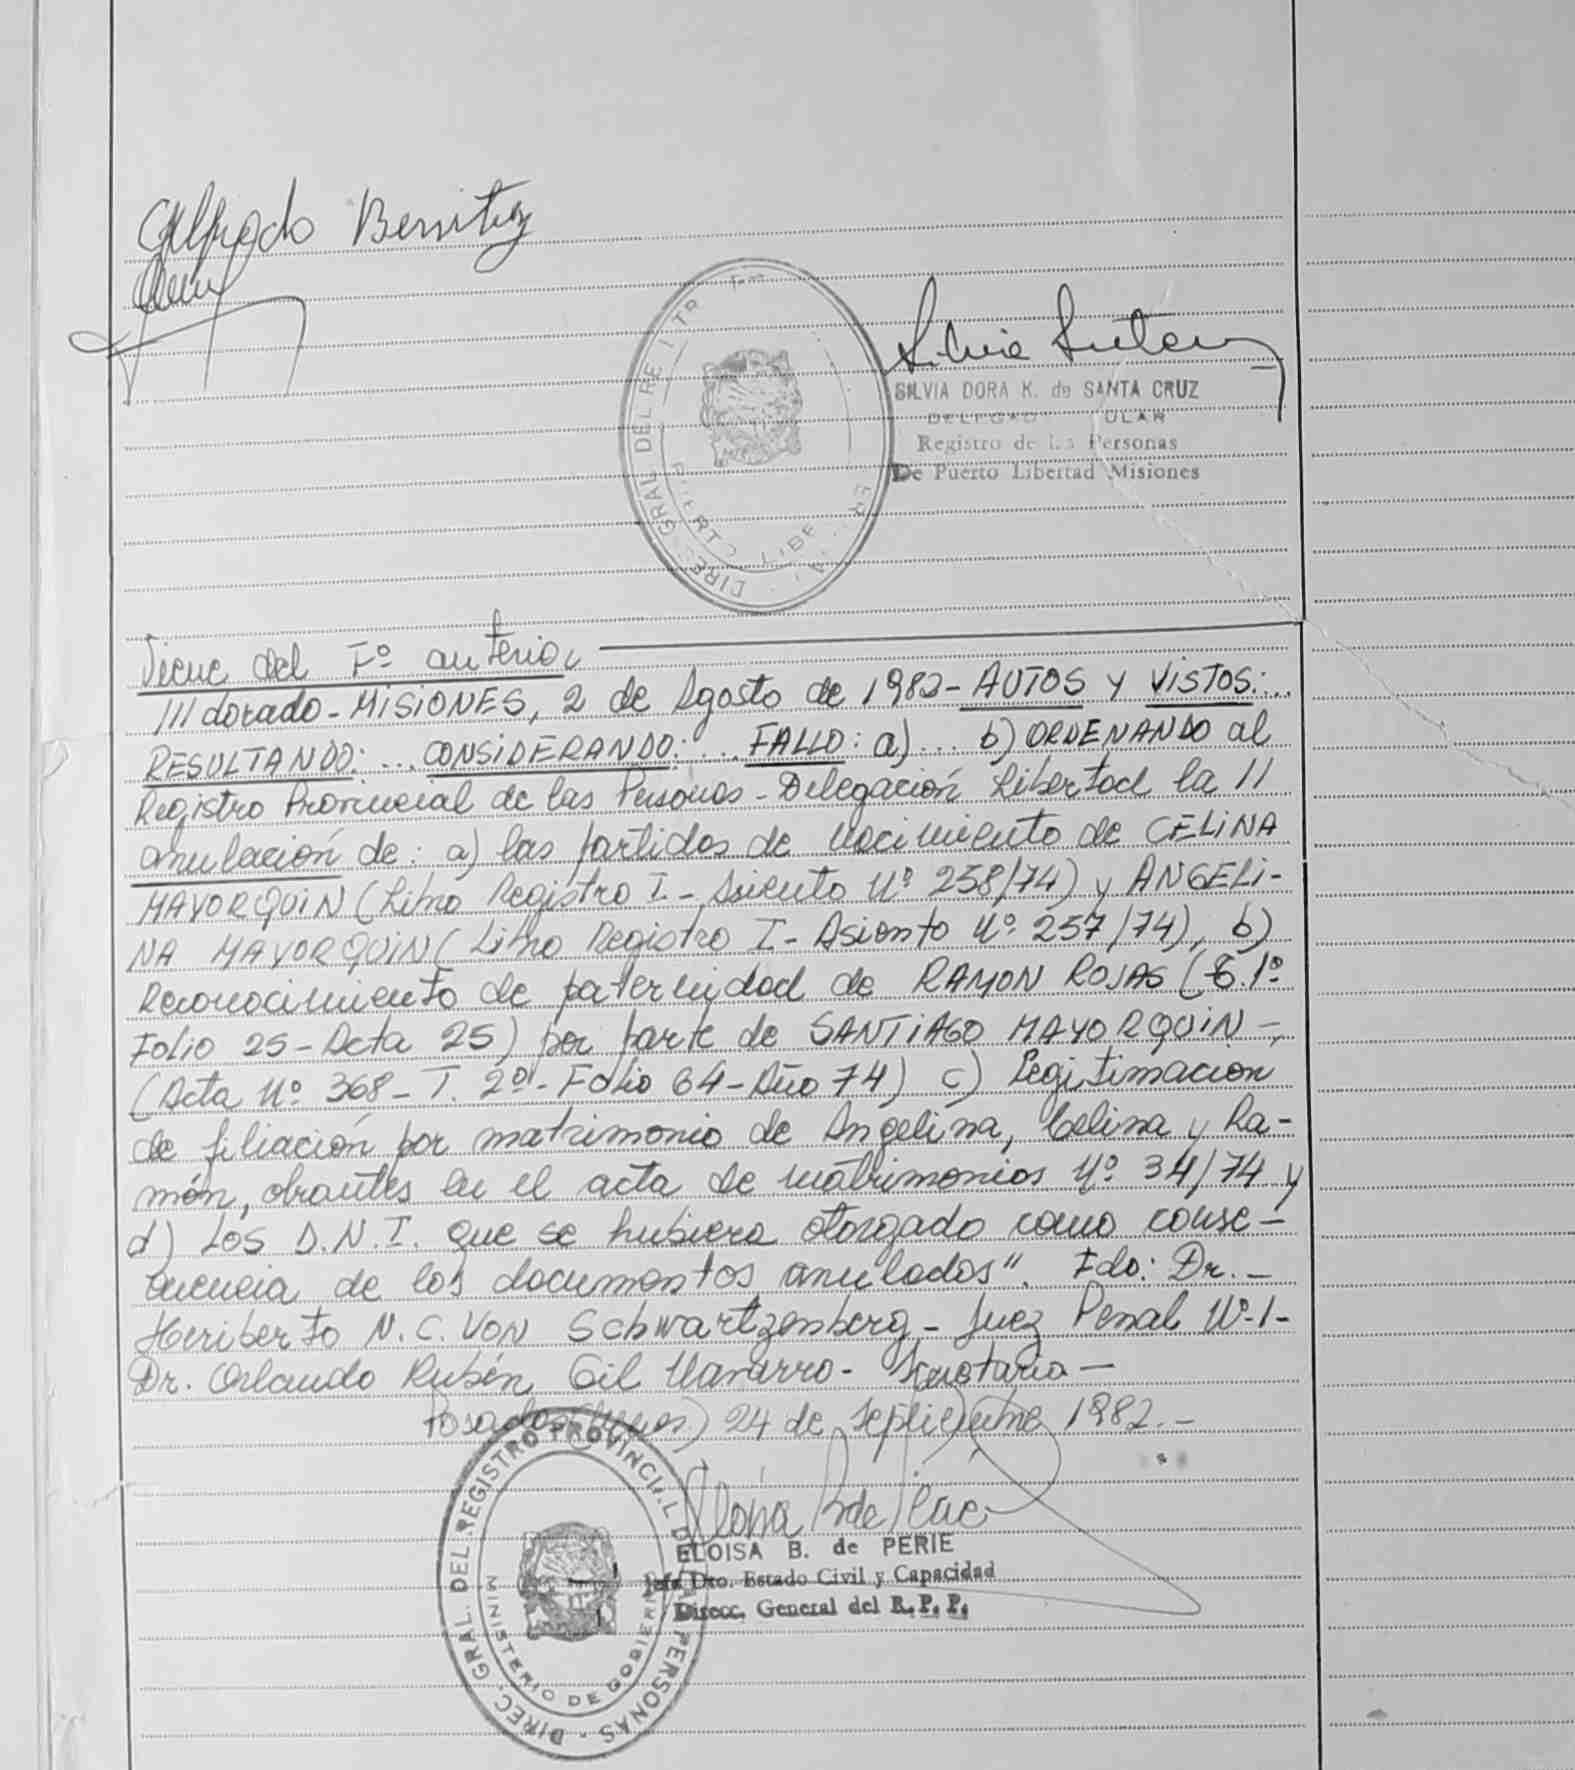 Alfredo Benitez
SILVIA DORA K. de SANTA CRUZ
DELEGAD ULAR
Registro de las Personas
De Puerto Libertad Misiones
DIREC. GRAL. DEL RE
PUERTO LIBE
Viene del Fº anterior
///dorado - MISIONES, 2 de Agosto de 1982 - AUTOS Y VISTOS: ...
RESULTANDO: ... CONSIDERANDO: ... FALLO: a) ... b) ORDENANDO al
Registro Provincial de las Personas - Delegación Libertad la //
anulación de: a) las partidas de nacimiento de CELINA
MAYORQUIN (Libro Registro I - Asiento Nº 258/74) y ANGELI-
NA MAYORQUIN (Libro Registro I - Asiento Nº 257/74), b)
Reconocimiento de paternidad de RAMON ROJAS (T. 1º
Folio 25 - Acta 25) por parte de SANTIAGO MAYORQUIN -
(Acta Nº 368 - T. 2º - Folio 64 - Año 74) c) Legitimación
de filiación por matrimonio de Angelina, Celina y Ra-
món, obrantes en el acta de matrimonios Nº 34/74 y
d) Los D.N.I. que se hubiera otorgado como conse-
cuencia de los documentos anulados". Fdo: Dr. -
Heriberto N. C. VON Schwartzenberg - Juez Penal Nº 1 -
Dr. Orlando Rubén Gil Navarro - Secretario -
Posadas 24 de Septiembre 1982. -
ELOISA B. de PERIE
Jefa Dto. Estado Civil y Capacidad
Direcc. General del R. P. P.
DIREC. GRAL. DEL REGISTRO PROVINCIAL DE PERSONAS -
MINISTERIO DE GOBIERN